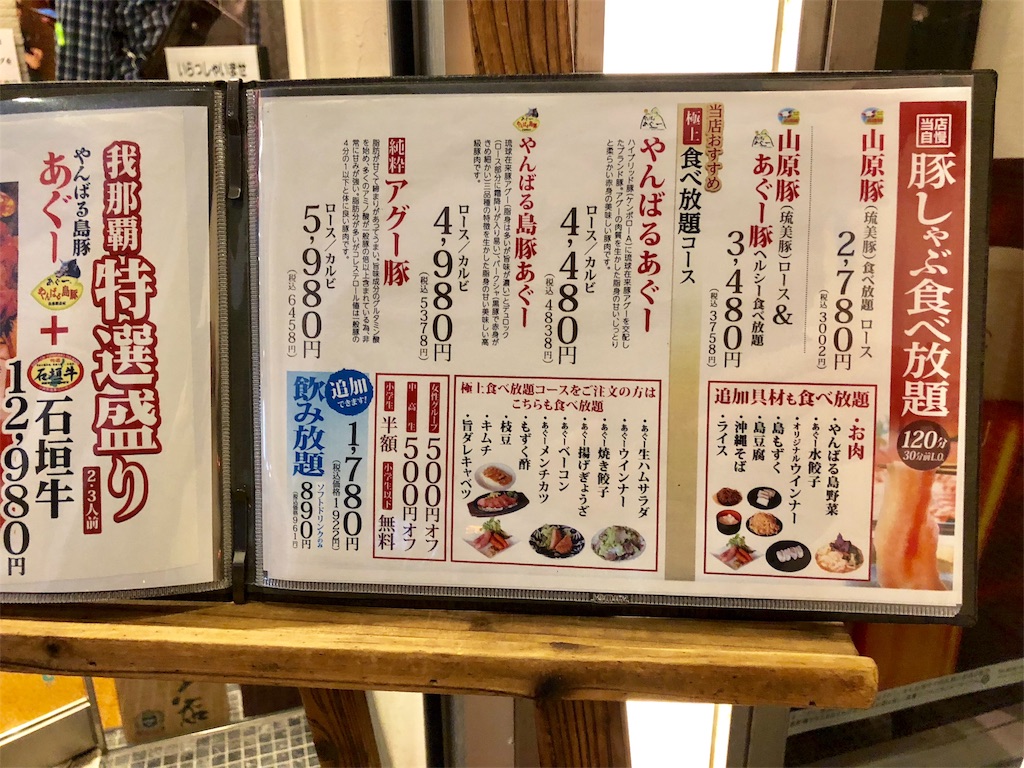 いらっしゃいませ
当店自慢
豚しゃぶ食べ放題
120分
30分前L.O.
山原豚(琉美豚)食べ放題 ロース
2,780円
(税込3002円)
山原豚(琉美豚)ロース&
あぐー豚ヘルシー食べ放題
3,480円
(税込3758円)
追加具材も食べ放題
・お肉
・やんばる島野菜
・あぐー水餃子
・オリジナルウインナー
・島もずく
・島豆腐
・沖縄そば
・ライス
当店おすすめ
極上 食べ放題コース
やんばるあぐー
ハイブリッド豚(ケンボロA)に琉球在来豚アグーを交配し
たブランド豚。アグーの肉質を生かした脂身の甘い、しっとり
と柔らかい赤身の美味しい豚肉です。
ロース/カルビ
4,480円
(税込4838円)
やんばる島豚あぐー
琉球在来豚アグー(脂身は多いが旨味が濃い)とデュロック
(ロース部分に霜降りが入り易い)、バークシャー(黒豚で赤身が
きめ細かい)三品種の特徴を生かした脂身の甘い美味しい高
級豚肉です。
ロース/カルビ
4,980円
(税込5378円)
純粋 アグー豚
脂肪が甘くて締まりがあってうまい。旨味成分のグルタミン酸
を始め、多くのアミノ酸が一般豚の倍以上含まれている為、非
常に甘みが強い。脂肪分が多いがコレステロール値は一般豚の
4分の1以下と体に良い豚肉です。
ロース/カルビ
5,980円
(税込6458円)
極上食べ放題コースをご注文の方は
こちらも食べ放題
・あぐー生ハムサラダ
・あぐーウインナー
・あぐー焼き餃子
・あぐー揚げぎょうざ
・あぐーベーコン
・あぐーメンチカツ
・もずく酢
・枝豆
・キムチ
・旨ダレキャベツ
女性グループ 500円オフ
中高生 500円オフ
小学生 半額
小学生以下 無料
追加できます!
飲み放題
1,780円
(税込価格1922円)
ソフトドリンクのみ
890円
(税込価格961円)
我那覇特選盛り
2・3人前
やんばる島豚
あぐー
あぐー
やんばる島豚
+
石垣牛
石垣牛
12,980円